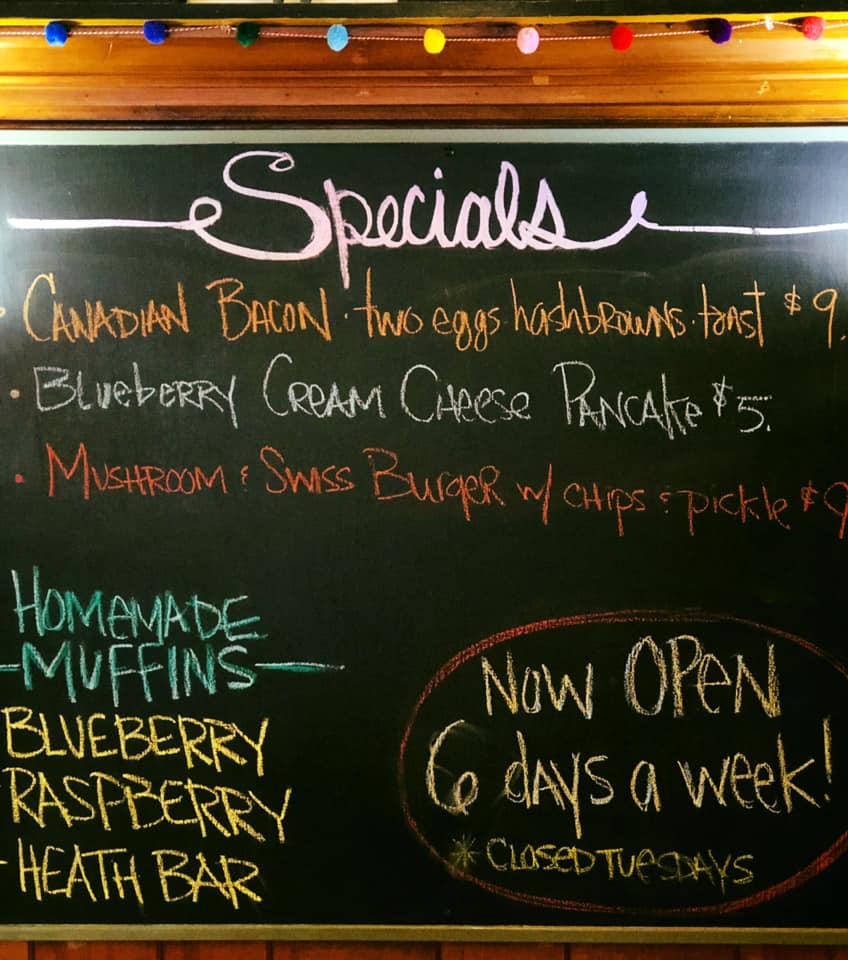 Specials
• CANADIAN BACON · two eggs · hashbrowns · toast $9.
• BLUEBERRY CREAM CHEESE PANCAKE $5.
• MUSHROOM & SWISS BURGER w/ CHIPS & PICKLE $9
HOMEMADE
-MUFFINS-
BLUEBERRY
RASPBERRY
- HEATH BAR
NOW OPEN
6 days a week!
* CLOSED TUESDAYS